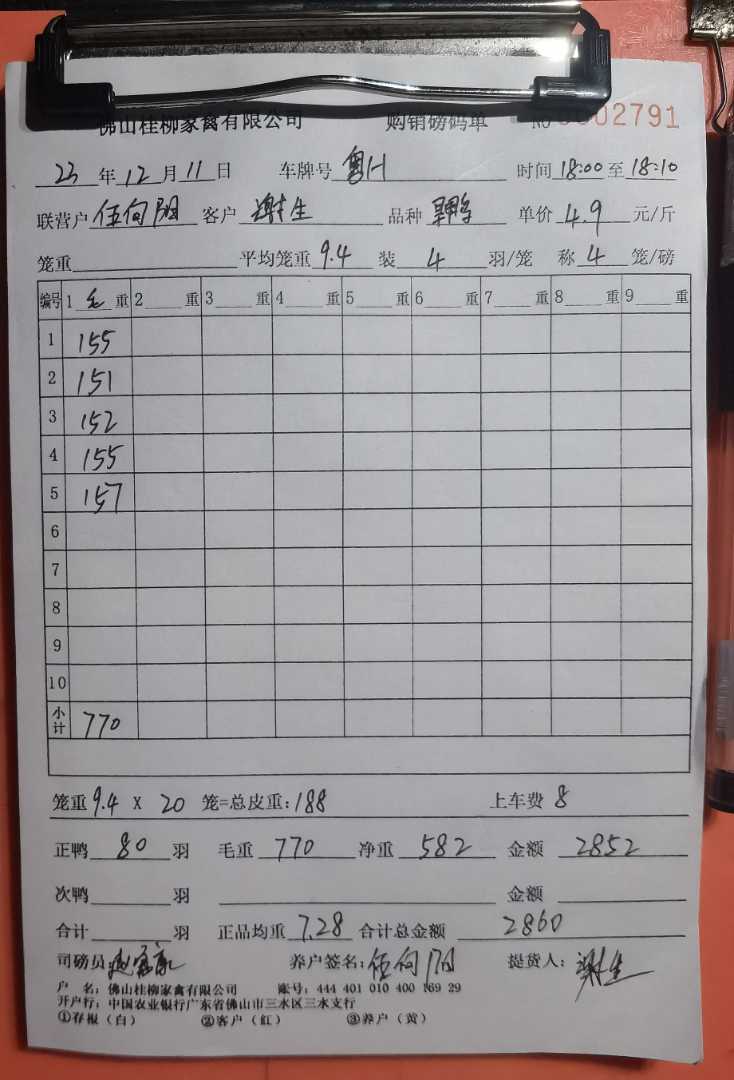 佛山桂柳家禽有限公司 购销磅码单 No 0002791
23年12月11日 车牌号 粤H 时间 18:00至18:10
联营户 伍向阳 客户 谢生 品种 单价 4.9 元/斤
笼重 平均笼重 9.4 装 4 羽/笼 称 4 笼/磅
编号 1 毛 重 2 重 3 重 4 重 5 重 6 重 7 重 8 重 9 重
1 155
2 151
3 152
4 155
5 157
6
7
8
9
10
小计 770
笼重 9.4 X 20 笼=总皮重: 188 上车费 8
正鸭 80 羽 毛重 770 净重 582 金额 2852
次鸭 羽 金额
合计 羽 正品均重 7.28 合计总金额 2860
司磅员 养户签名: 伍向阳 提货人: 谢生
户 名: 佛山桂柳家禽有限公司 账号: 444 401 010 400 169 29
开户行: 中国农业银行广东省佛山市三水区三水支行
①存根（白） ②客户（红） ③养户（黄）